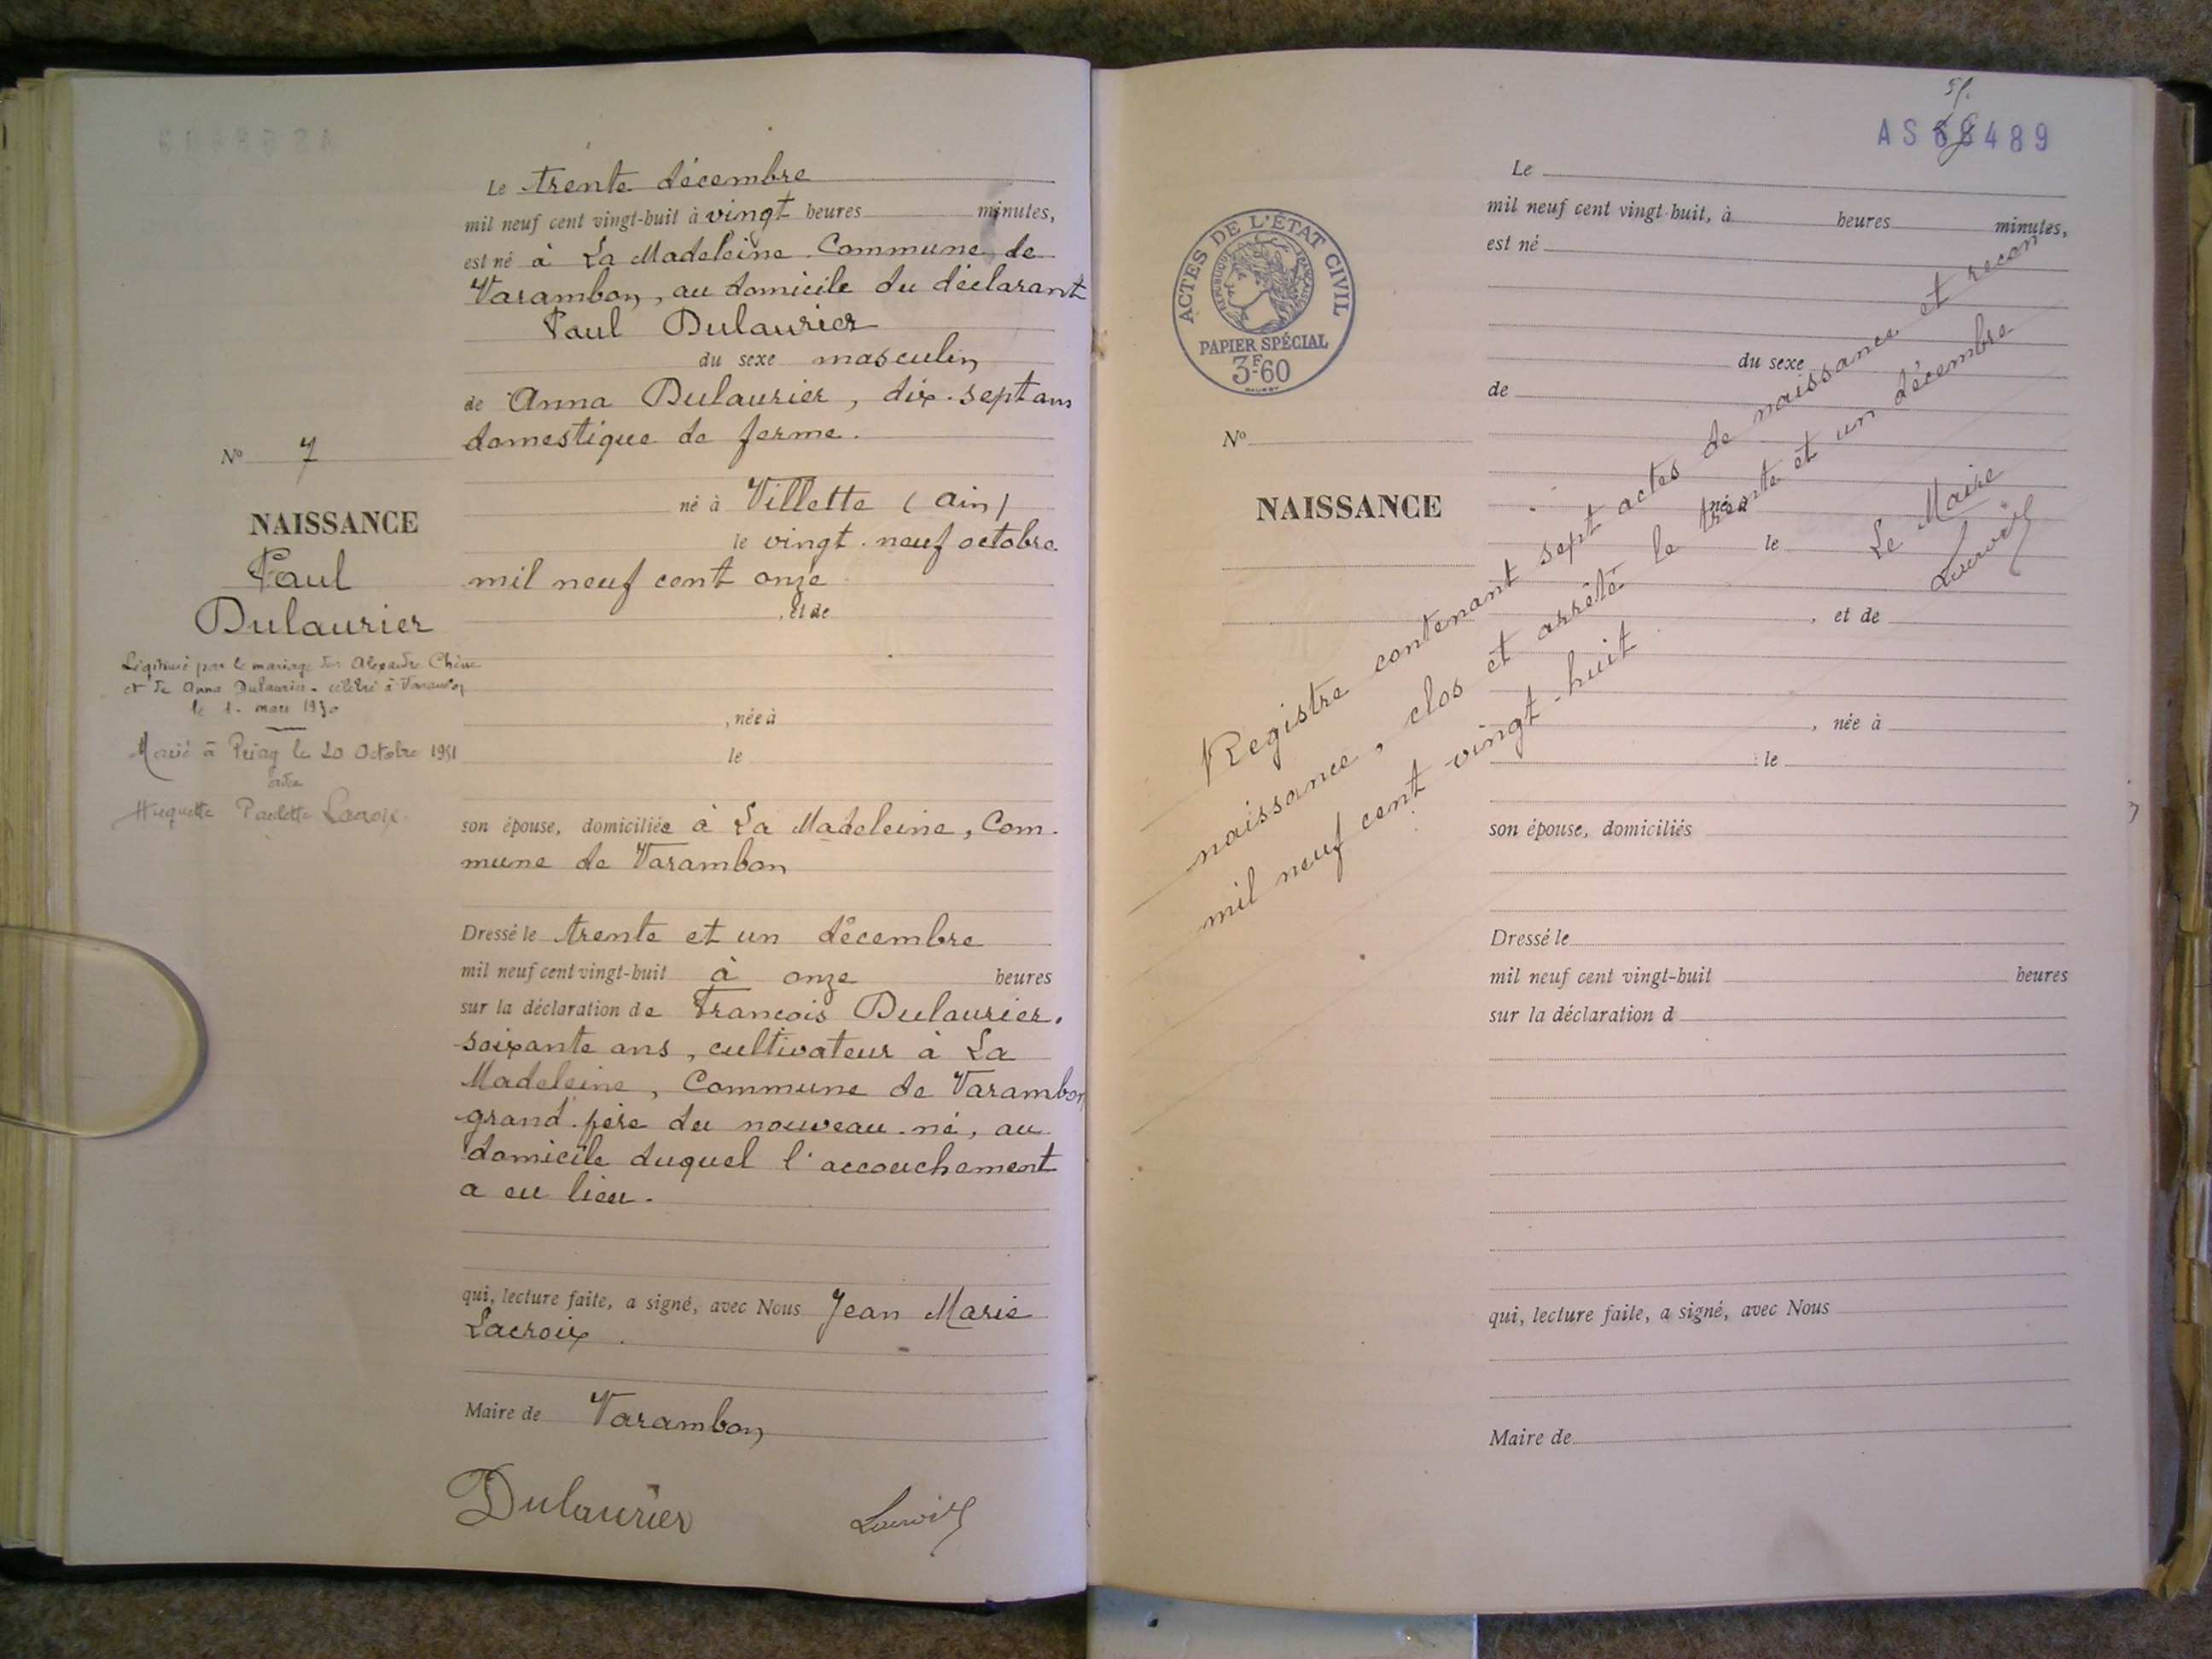 Le trente décembre
mil neuf cent vingt-huit à vingt heures minutes,
est né à La Madeleine Commune de
Varambon, au domicile du déclarant
Paul Dulaurier
du sexe masculin
de Anna Dulaurier, dix-sept ans
domestique de ferme.
né à Villette (Ain)
le vingt-neuf octobre
mil neuf cent onze
, et de
, née à
le
son épouse, domiciliée à La Madeleine, Com-
mune de Varambon
Dressé le trente et un décembre
mil neuf cent vingt-huit à onze heures
sur la déclaration de François Dulaurier,
soixante ans, cultivateur à La
Madeleine, Commune de Varambon
grand-père du nouveau-né, au
domicile duquel l'accouchement
a eu lieu.
qui, lecture faite, a signé, avec Nous Jean Marie
Lacroix.
Maire de Varambon
Dulaurier Lacroix
No 7
NAISSANCE
Paul
Dulaurier
Légitimé par le mariage de Alexandre Chêne
et de Anna Dulaurier - célébré à Varambon
le 1. mars 1930
Marié à Priay le 20 Octobre 1951
avec
Huguette Paulette Lacroix.
AS 489
ACTES DE L'ÉTAT CIVIL
RÉPUBLIQUE FRANÇAISE
PAPIER SPÉCIAL
3F60
No
NAISSANCE
Le
mil neuf cent vingt-huit, à heures minutes,
est né
du sexe
de
né à
le
, et de
, née à
le
son épouse, domiciliés
Dressé le
mil neuf cent vingt-huit heures
sur la déclaration d
qui, lecture faite, a signé, avec Nous
Maire de
Registre contenant sept actes de naissance et recon
naissance, clos et arrêté le trente et un décembre
mil neuf cent vingt-huit
Le Maire
Lacroix